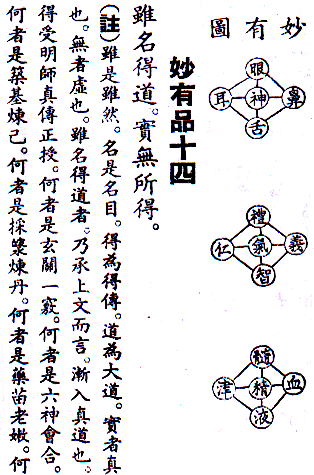 妙有圖
眼
鼻
神
耳
舌
禮
義
氣
仁
智
髓
血
精
津
液
妙有品十四
雖名得道。實無所得。
(註)雖是雖然。名是名目。得為得傳。道為大道。實者真
也。無者虛也。雖名得道者。乃承上文而言。漸入真道也。
得受明師真傳正授。何者是玄關一竅。何者是六神會合。
何者是築基煉己。何者是採藥煉丹。何者是藥苗老嫩。何